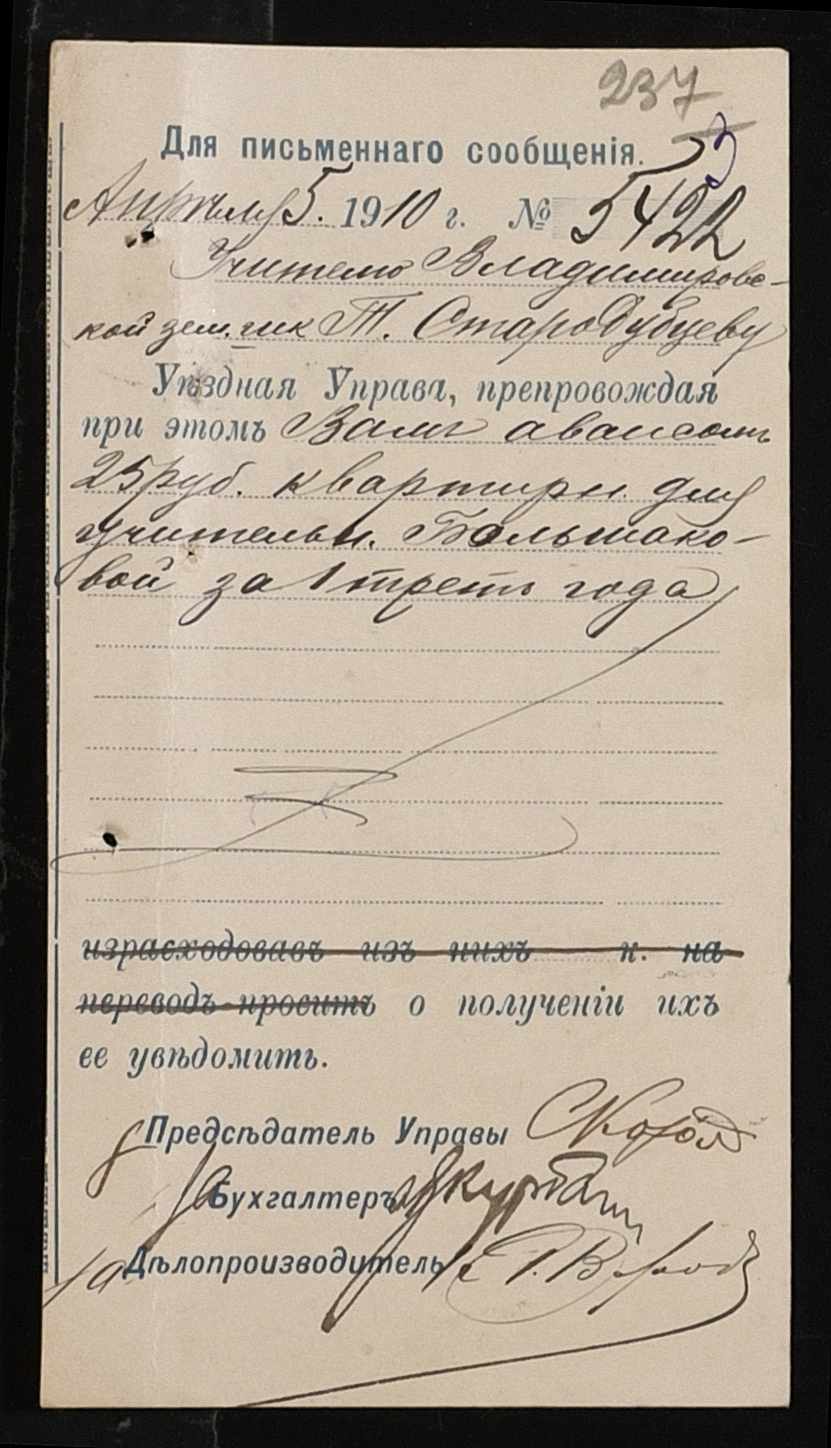 237
53
Для письменнаго сообщенія.
Апрѣля 5. 1910 г. № 5422
Учителю Владимировс-
кой зем. Т. Стародубцеву
Уѣздная Управа, препровождая
при этомъ Вамъ авансомъ
25 руб. квартирн. для
учительн. Большако-
вой за 1 треть года
израсходовавъ изъ нихъ к. на
переводъ просить о полученіи ихъ
ее увѣдомить.
Предсѣдатель Управы
За Бухгалтеръ
За Дѣлопроизводитель